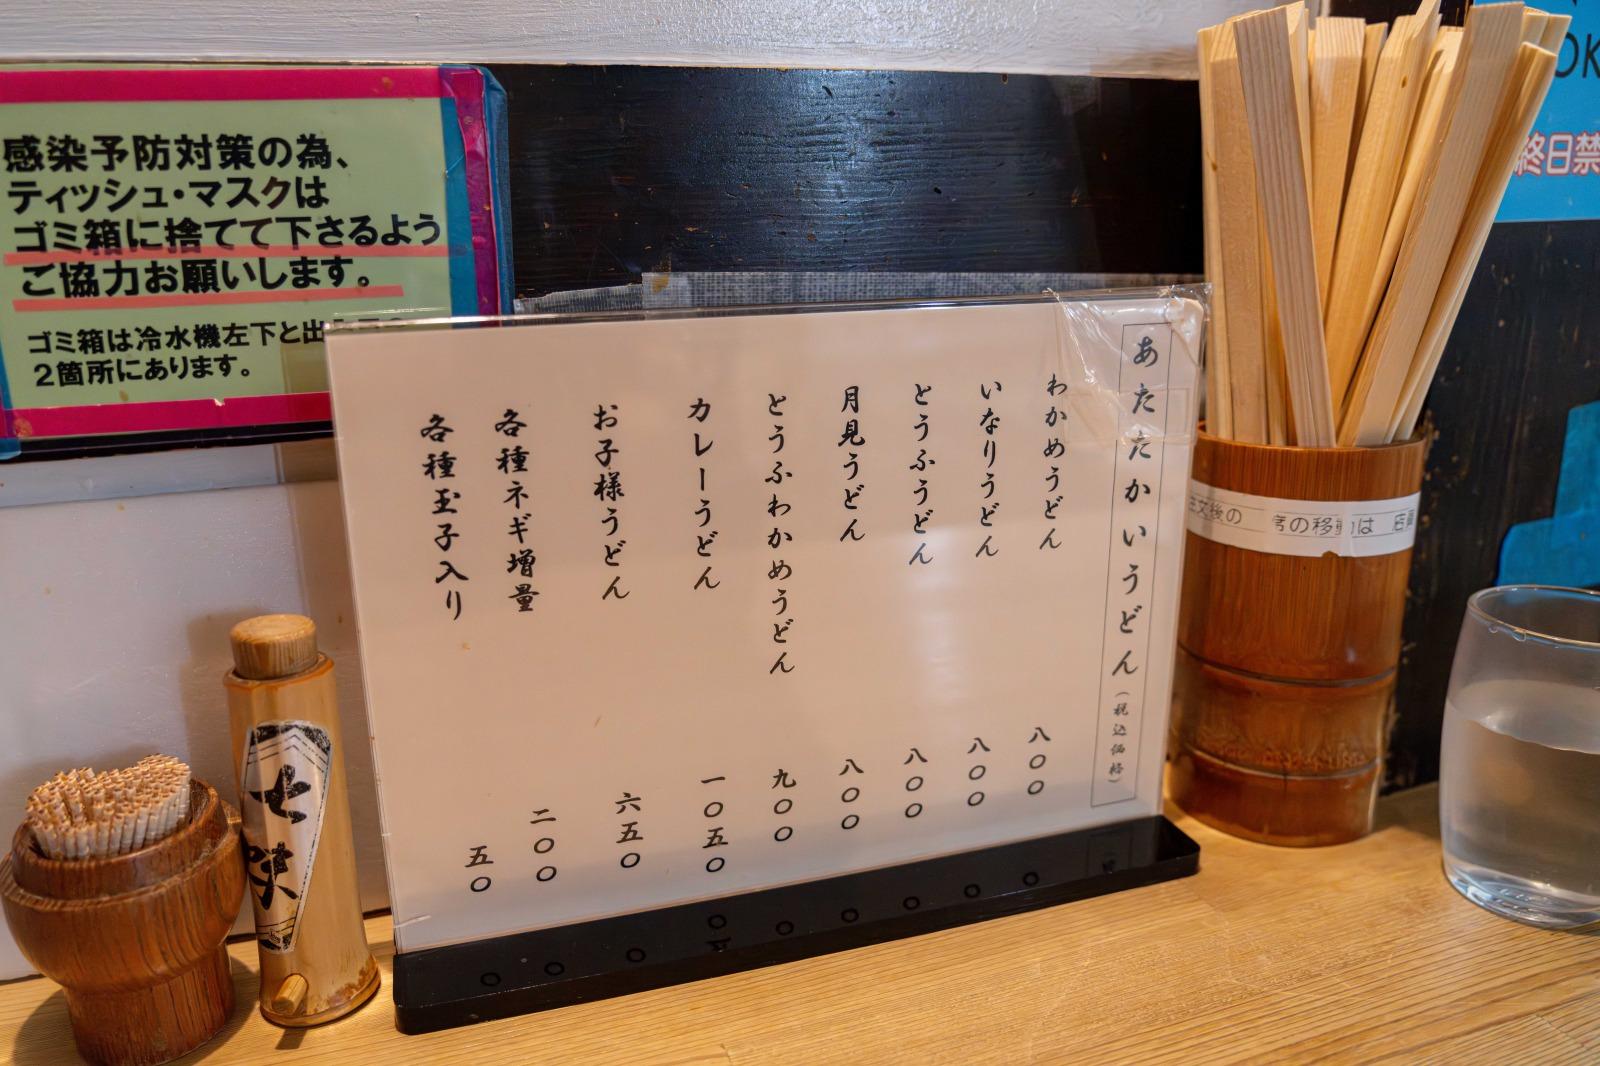 感染予防対策の為、
ティッシュ・マスクは
ゴミ箱に捨てて下さるよう
ご協力お願いします。
ゴミ箱は冷水機左下と出
2箇所にあります。
あたたかいうどん(税込価格)
わかめうどん 八〇〇
いなりうどん 八〇〇
とうふうどん 八〇〇
月見うどん 八〇〇
とうふわかめうどん 九〇〇
カレーうどん 一〇五〇
お子様うどん 六五〇
各種ネギ増量 二〇〇
各種玉子入り 五〇
七味
文後の 席の移動は 店員
OK
終日禁